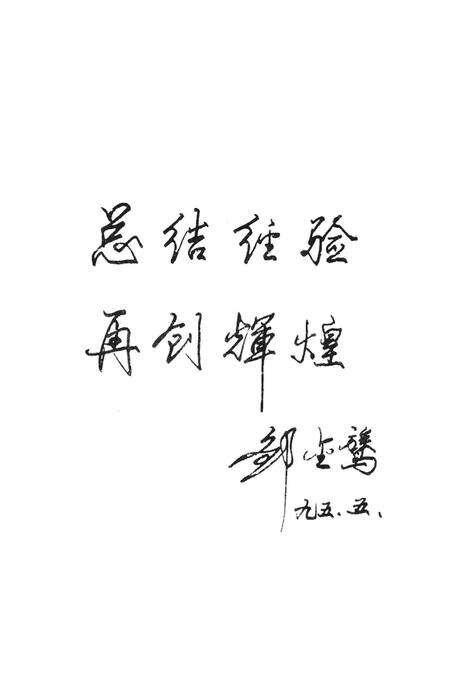 总结经验
再创輝煌
九五.五.